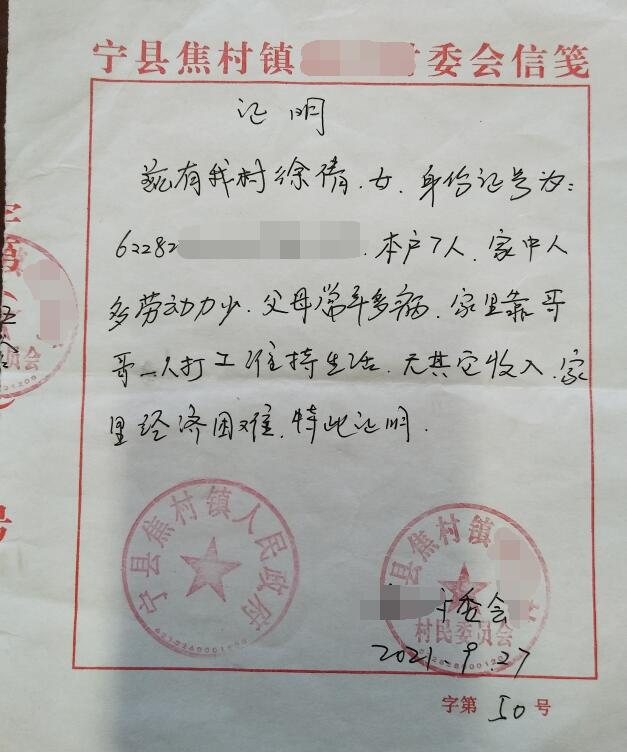 宁县焦村镇 村委会信笺
证明
兹有我村徐倩,女,身份证号为:
62282 .本户7人,家中人
多劳动力少,父母常年多病,家里靠哥
哥一人打工维持生活,无其它收入,家
里经济困难,特此证明.
宁县焦村镇人民政府
县焦村镇
村民委员会
村委会
2021.9.27
字第 50 号
委员会
号